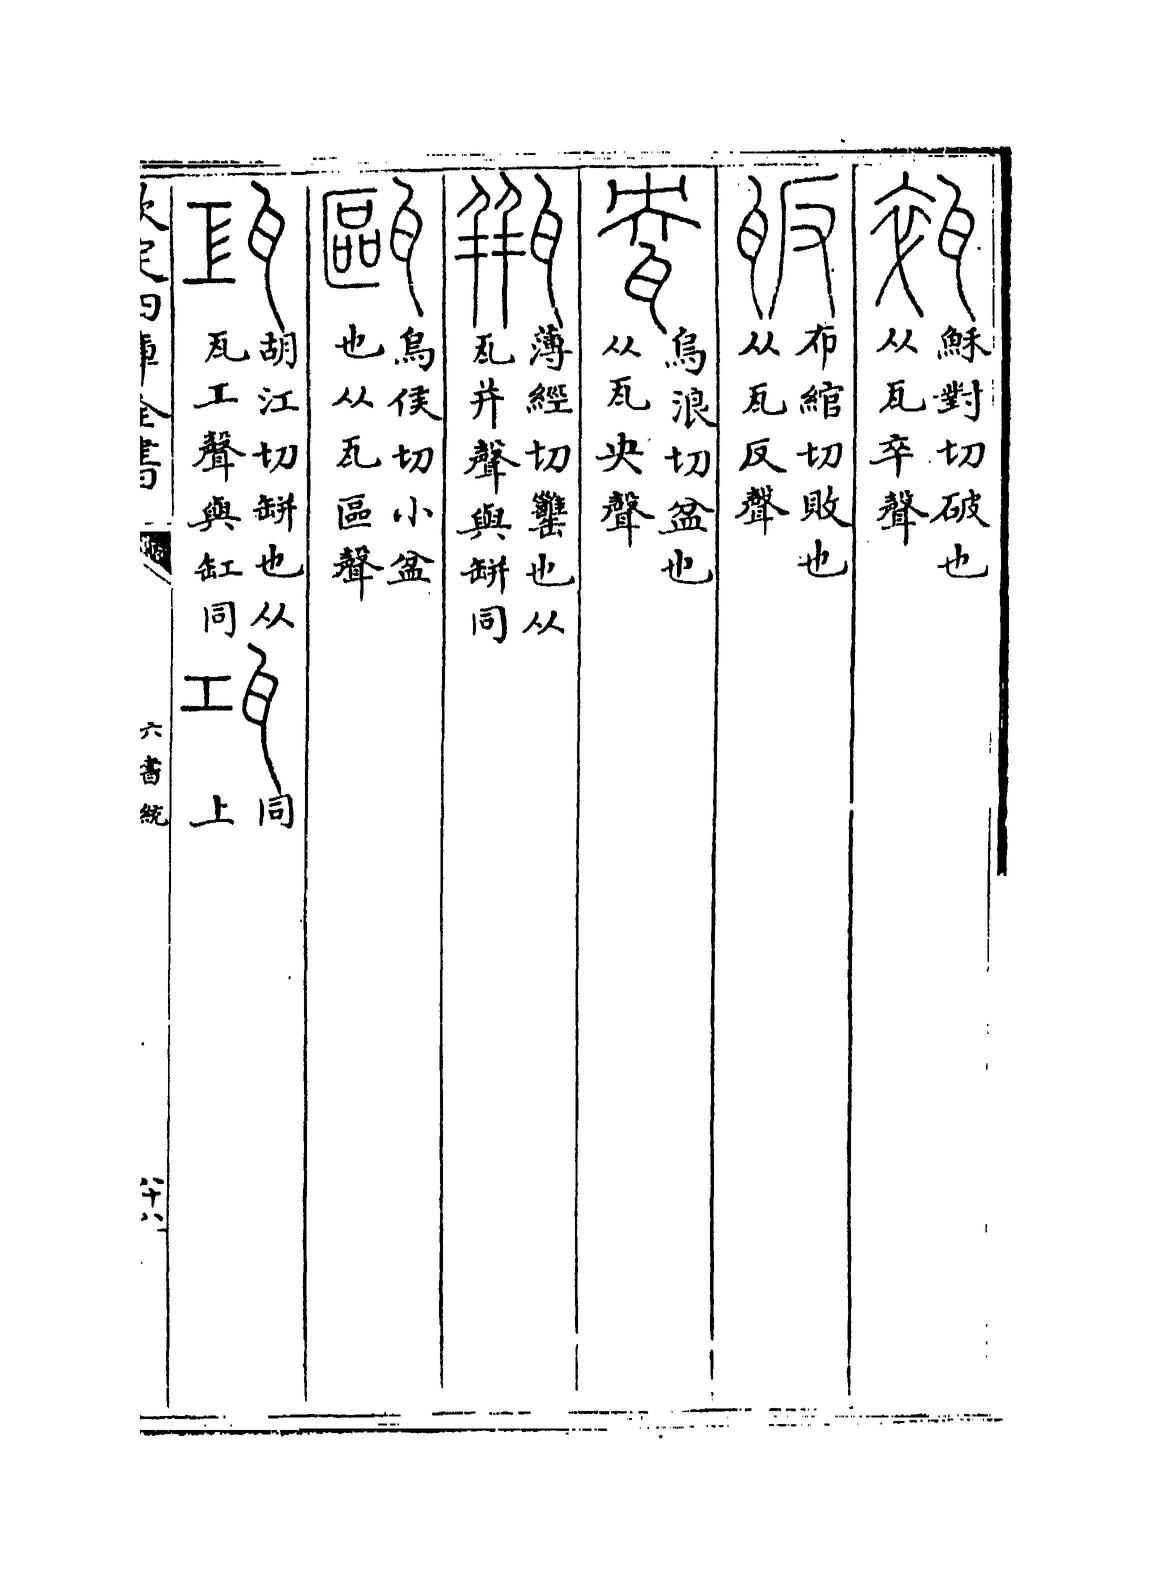 𤭢穌對切破也
从瓦卒聲
瓪布綰切敗也
从瓦反聲
㼜烏浪切盆也
从瓦央聲
缾薄經切罋也从
瓦并聲與缾同
甌烏侯切小盆
也从瓦區聲
瓨胡江切缾也从
瓦工聲與缸同
瓨同
上
欽定四庫全書
六書統
八十八